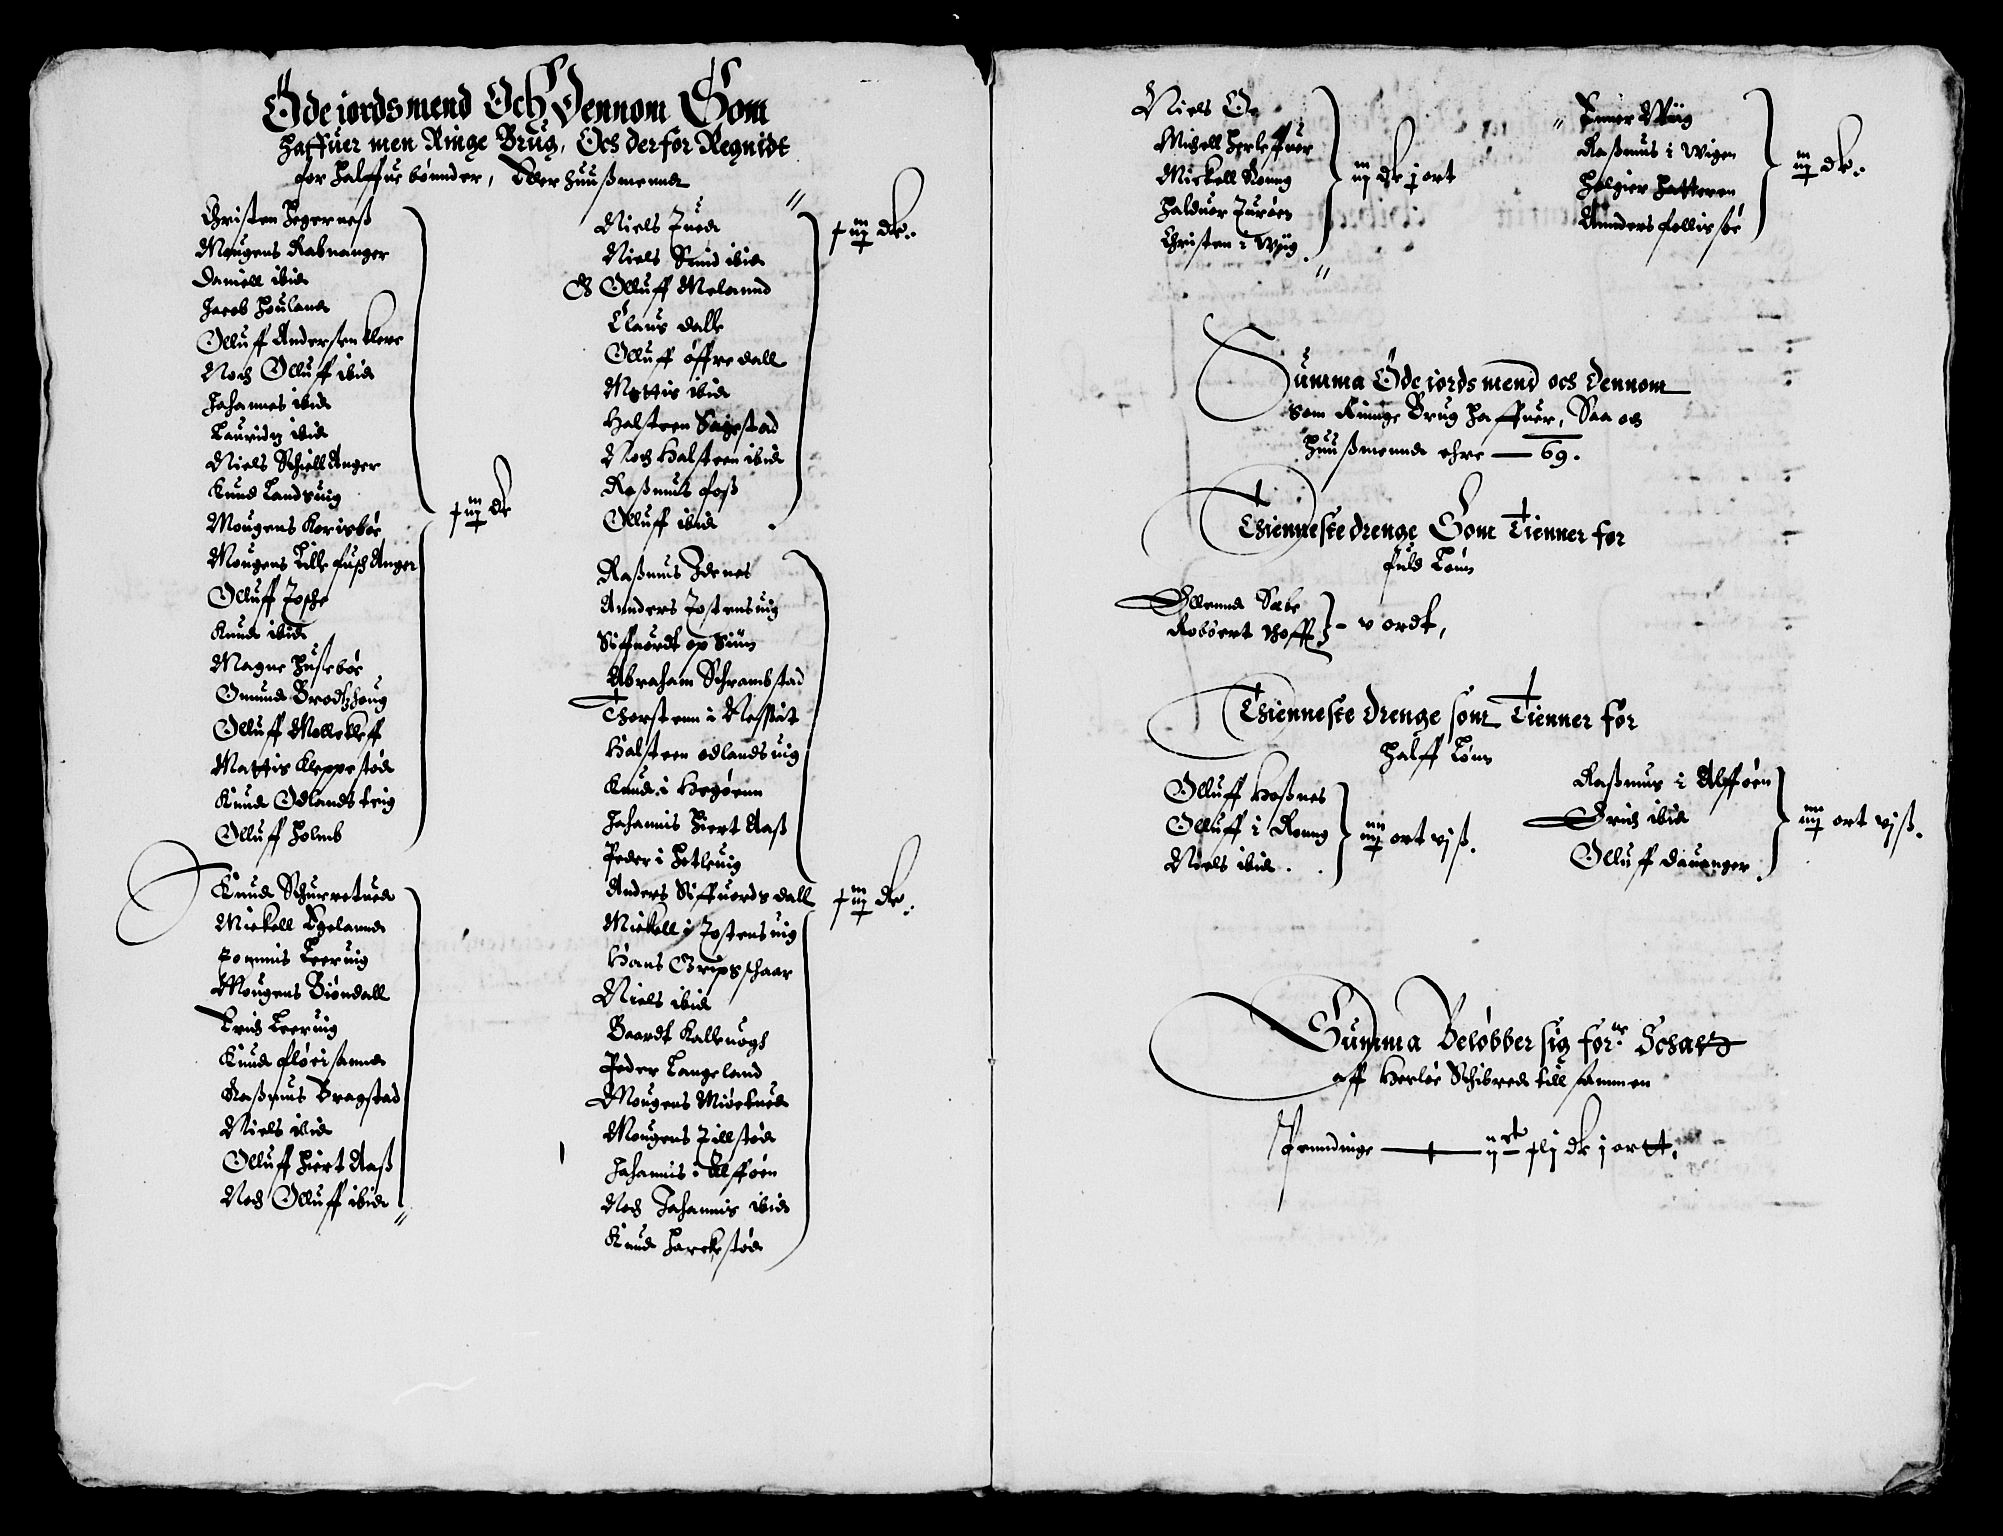 Ödejordsmend Och Dennom Som
haffuer men Ringe Brug, Och derfor Regnidt
for halffue bønnder, Eller huußmennd
Christen Hegerneß
Mougens Rabnanger
Daniell ibid
Jacob Houland
Olluff Andersen kleve
Noch Olluff ibid
Johannes ibid
Lauridz ibid
Niels Schiellanger
Knud Landsuig
Mougens Horisbøe
Mougens Lille fuschanger
Olluff Josche
Knud ibid
Magne Husebøe
Omund Brodtzhoug
Olluff Mollekleff
Mattis Kleppestød
Knud Odlandstuig
Olluff Holmb
+ iiij dlr
Knud Schurretued
Mickell Egeland
Tommis Leeruig
Mougens Biøndall
Erich Leeruig
Knud fløisand
Raßmus Bragstad
Niels ibid
Olluff Hiertaaß
Noch Olluff ibid
Niels Tued
Niels Sund ibid
Olluff Meland
Claus dalle
Olluff øffredall
Mattis ibid
Halsteen Sagestad
Noch Halsteen ibid
Raßmus foß
Olluff ibid
+ iiij dlr
Raßmus Idenes
Anders Tostensuig
Siffuerdt op Siün
Abraham Schrambstad
Thorstenn i Nessit
Halsteen odlandsuig
Knud i Hegøenn
Johannis Hiertaaß
Peder i Hetleuig
Anders Siffuerdsdall
Mickell i Tostensuig
Hans Gripsschaar
Niels ibid
Baardt Kalleuogh
Peder Langeland
Mougens Miøltued
Mougens Tillstød
Johannis i Alføen
Noch Johannis ibid
Knud Harckestød
+ iiij dlr
Niels Øe
Michell Herleffuer
Mickell Ronng
Halduor Turøen
Christen i Wiig
iij dlr j ort
Einer Wiig
Raßmus i Wigen
Holgier Hatteren
Annders follisøe
iij dlr
Summa Ødejordsmend och dennom
som Ringe Brug haffuer, Saa och
Huußmennd ehre — 69.
Thienneste drenge Som Tienner for
fuld Løn
Ellennd Sæbe
Robbert Hoff
– v ordt,
Thienneste drenge som Tienner for
halff Løn
Olluff Hoßnes
Olluff i Ronng
Niels ibid
iiij ort vj ß.
Raßmus i Alfføen
Erich ibid
Olluff dauanger
iiij ort vj ß.
Summa Beløbber sig forne Schatt
aff Herløe Schibred till sammen
Penndinge — ij c xlj dlr j ortt.